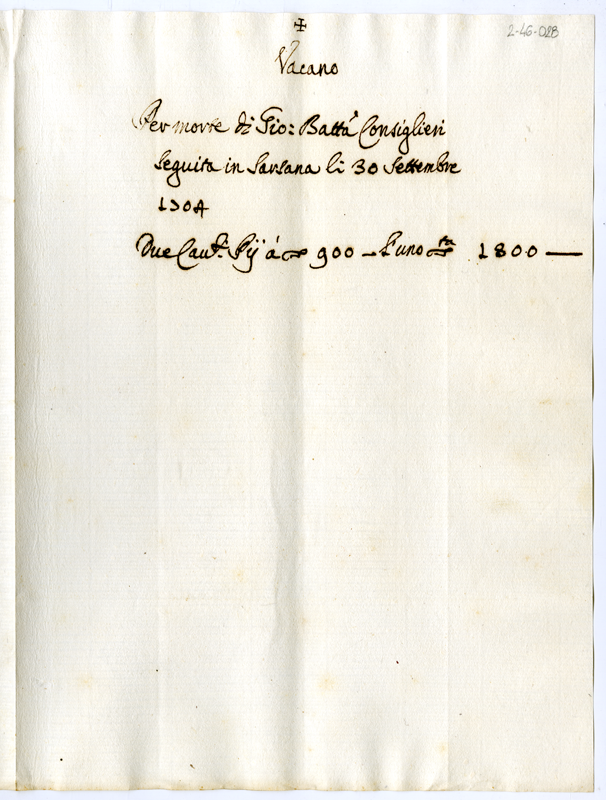 2-46-028
✠
Vacano
Per morte di Gio: Batta Consiglieri
seguita in Sarsana li 30 Settembre
1704
Due Cau.ti Pij à 900 — l'uno 1800 —